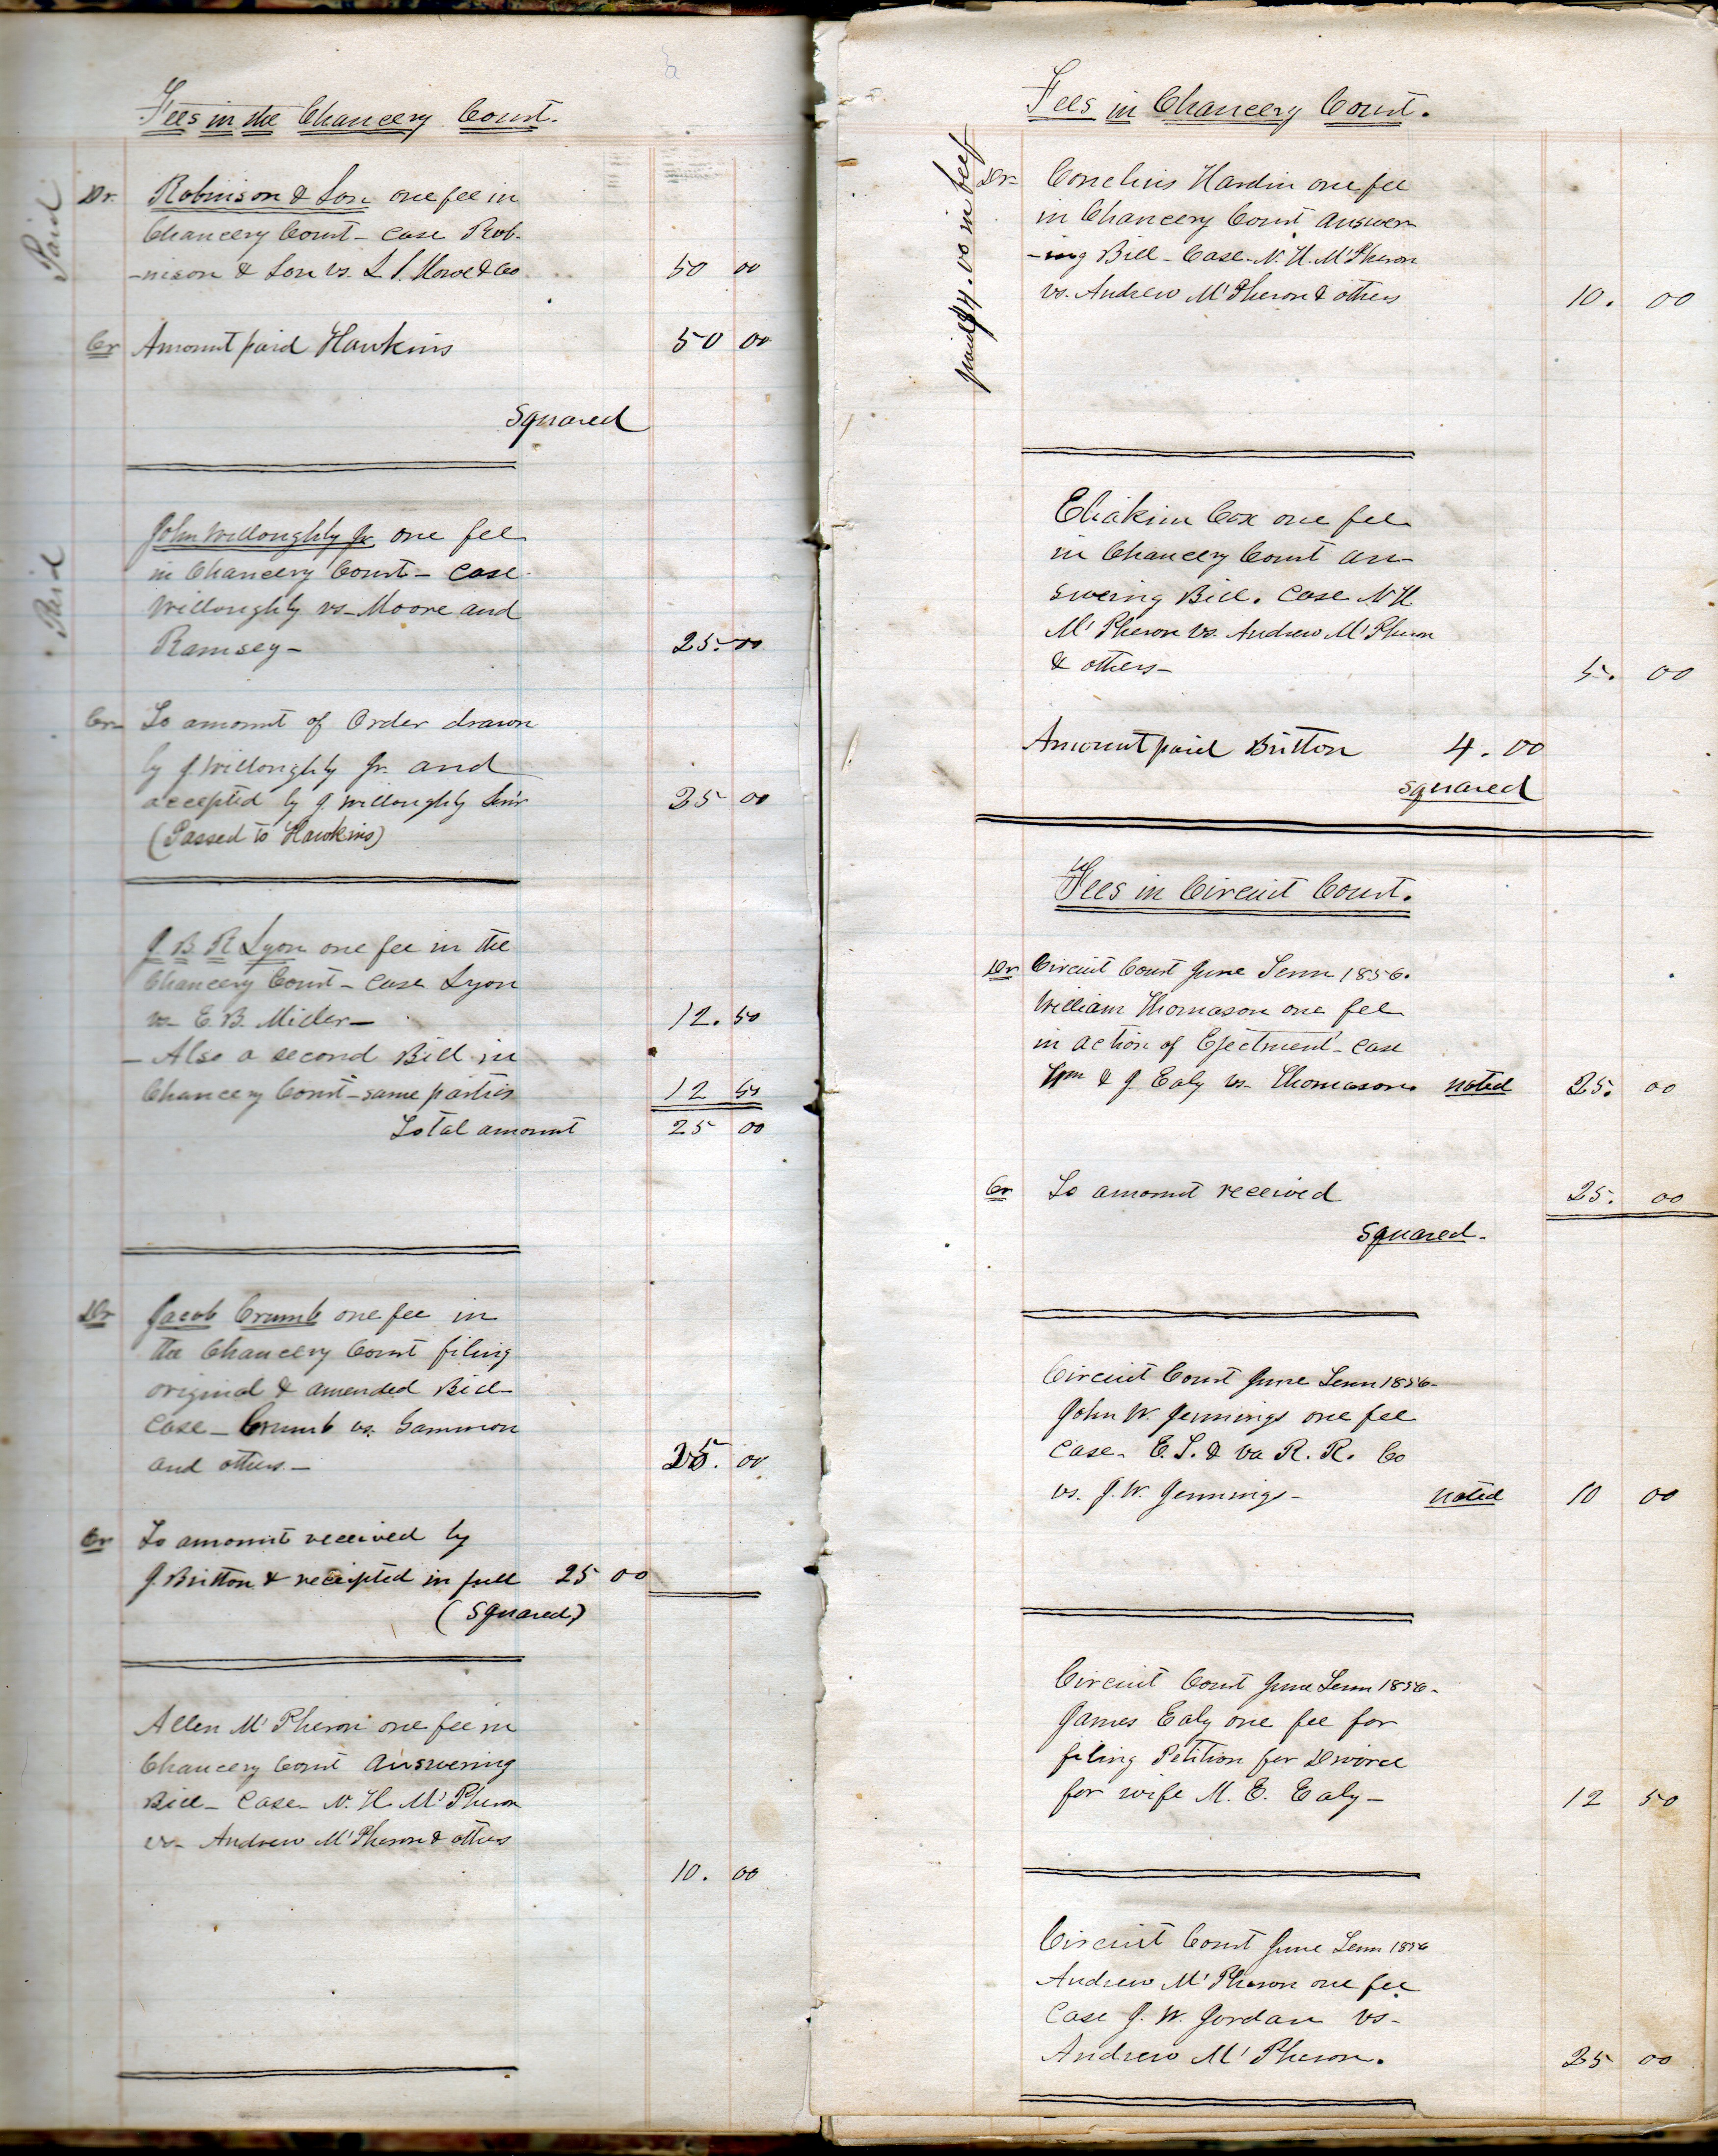 Fees in the Chancery Court.
Paid
Dr. Robinson & Son one fee in
Chancery Court - case Rob-
-nison & Son vs. L. S. Howe & Co 50 00
Cr Amount paid Hawkins 50 00
Squared
Paid
John Willoughby Jr. one fee
in Chancery Court - case
Willoughby vs - Moore and
Ramsey - 25.00
Cr- To amount of Order drawn
by J. Willoughby Jr. and
accepted by J Willoughby Sen'r 25 00
(Passed to Hawkins)
J B R Lyon one fee in the
Chancery Court - case Lyon
vs - E. B. Miller - 12.50
- Also a second Bill in
Chancery Court - same parties 12 50
Total amount 25 00
Dr Jacob Crumb one fee in
the Chancery Court filing
original & amended Bill -
case - Crumb vs. Gammon
and others - 25. 00
Cr To amount received by
J. Britton & receipted in full 25 00
(Squared)
Allen M'Pheron one fee in
Chancery Court Answering
Bill - Case - N. H. M'Pheron
vs - Andrew M'Pheron & others
10. 00
Fees in Chancery Court.
paid $4.00 in beef
Dr- Cornelius Hardin one fee
in Chancery Court answer
-ing Bill - Case - N. H. M'Pheron
vs. Andrew M'Pheron & others 10. 00
Eliakim Cox one fee
in Chancery Court an-
swering Bill. Case N H
M'Pheron vs. Andrew M'Pheron
& others - 5. 00
Amount paid Britton 4.00
squared
Fees in Circuit Court.
Dr Circuit Court June Term 1856.
William Thomason one fee
in action of Ejectment - case
Wm & J. Ealy vs - Thomason. noted 25. 00
Cr To amount received 25. 00
Squared -
Circuit Court June Term 1856 -
John W. Jennings one fee
case - E. T. & Va R. R. Co
vs. J. W. Jennings - noted 10 00
Circuit Court June Term 1856 -
James Ealy one fee for
filing Petition for Divorce
for wife M. E. Ealy - 12 50
Circuit Court June Term 1856
Andrew M'Pheron one fee
case J. W. Jordan vs -
Andrew M'Pheron. 25 00